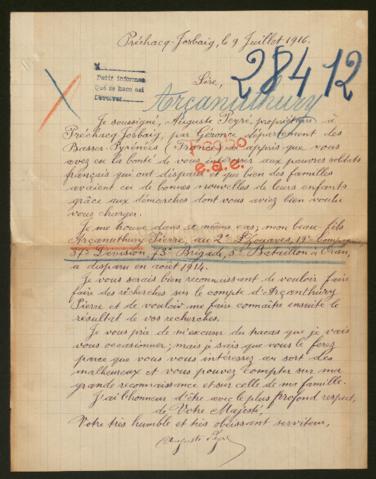 Préchacq-Josbaig, le 9 Juillet 1916.
Pedir informes
Qué se hace así
Sire,
28412
Arçanuthury
Je soussigné, Auguste Peyré, propriétaire à
Préchacq-Josbaig, par Géronce, département des
Basses Pyrénées (France) appris que vous
avez eu la bonté de vous intéresser aux pauvres soldats
français qui ont disparu et que bien des familles
avaient eu de bonnes nouvelles de leurs enfants
grâce aux démarches dont vous aviez bien voulu
vous charger.
Je me trouve dans ce même cas; mon beau-fils
Arçanuthury Pierre, au 2e Zouaves, 19e Compagnie
37e Division, 73e Brigade, 5e Bataillon à Oran,
a disparu en août 1914.
Je vous serais bien reconnaissant de vouloir faire
faire des recherches sur le compte d'Arçanuthury
Pierre et de vouloir me faire connaître ensuite le
résultat de vos recherches.
Je vous prie de m'excuser du tracas que je vais
vous occasionner; mais je sais que vous le ferez
parce que vous vous intéressez au sort des
malheureux et vous pouvez compter sur ma
grande reconnaissance et sur celle de ma famille.
J'ai l'honneur d'être avec le plus profond respect,
de Votre Majesté,
Votre très humble et très obéissant serviteur,
Auguste Peyré